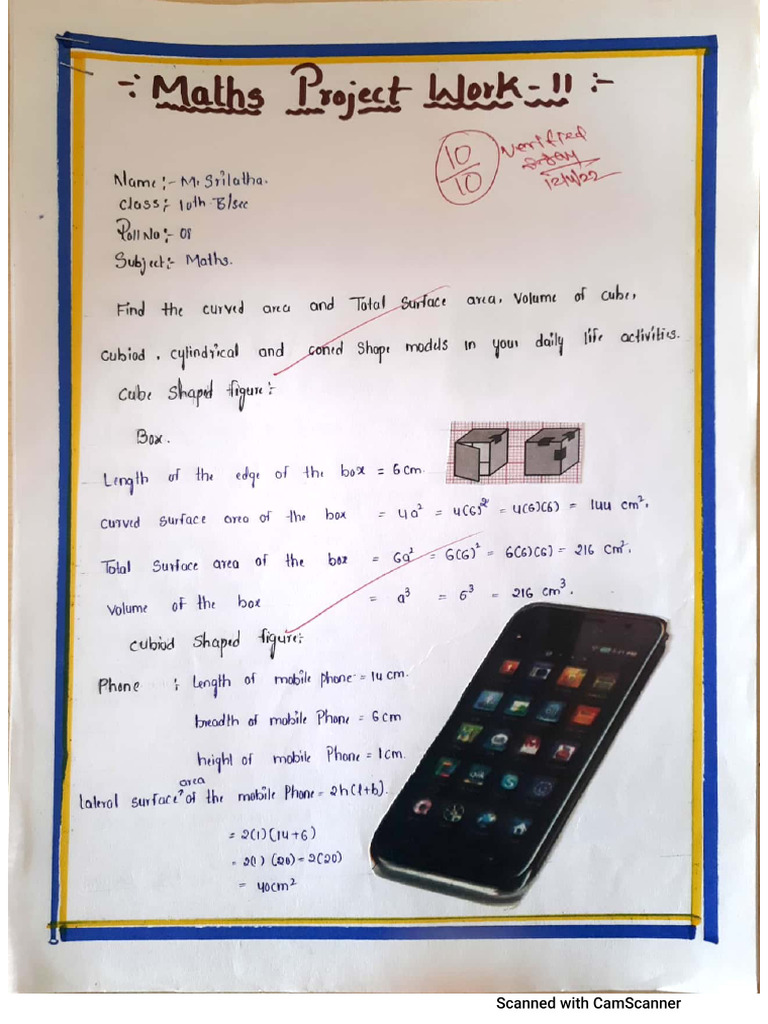 -: Maths Project Work-II :-
10/10
Verified
12/4/22
Name:- M. Srilatha.
class:- 10th B/sec
Roll No:- 08
Subject:- Maths.
Find the curved area and Total Surface area, Volume of cube,
cubiod, cylindrical and coned Shape models in your daily life activities.
Cube Shaped figure:-
Box.
Length of the edge of the box = 6cm.
curved surface area of the box = 4a² = 4(6)² = 4(6)(6) = 144 cm².
Total Surface area of the box = 6a² = 6(6)² = 6(6)(6) = 216 cm².
Volume of the box = a³ = 6³ = 216 cm³.
cubiod Shaped figure:-
Phone : Length of mobile phone = 14cm.
breadth of mobile Phone = 6cm
height of mobile Phone = 1cm.
lateral surface area of the mobile Phone = 2h(l+b).
= 2(1)(14+6)
= 2(1)(20) = 2(20)
= 40cm²
Scanned with CamScanner